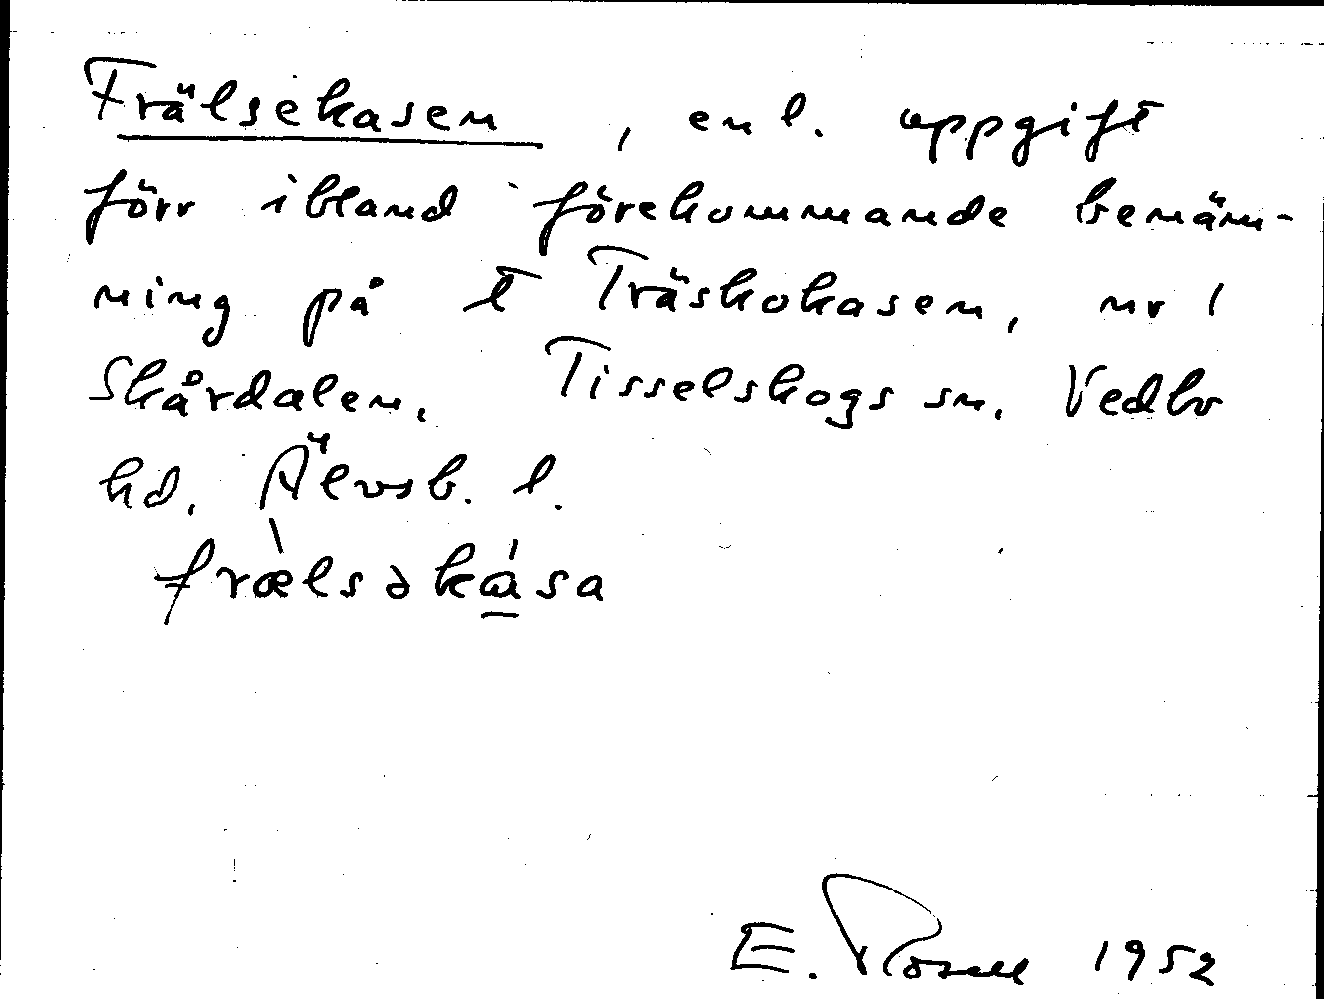 Frälsekasen, enl. uppgift
förr ibland förekommande benäm-
ning på t Träskokasen, nr 1
Skårdalen. Tisselskogs sn. Vedbo
hd. Älvsb. l.
fræ̀lsəká̱sa
E. Rosell 1952